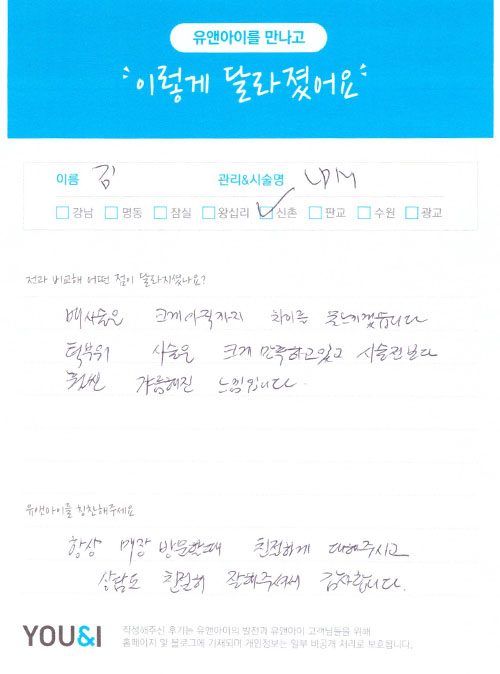 유앤아이를 만나고
이렇게 달라졌어요
이름 김 관리&시술명 LDM
강남 명동 잠실 왕십리 신촌 판교 수원 광교
전과 비교해 어떤 점이 달라지셨나요?
배시술은 크게 아직까지 차이를 못느끼겠습니다
턱부위 시술은 크게 만족하고있고 시술전보다
훨씬 갸름해진 느낌입니다.
유앤아이를 칭찬해주세요
항상 매장 방문할때 친절하게 대해주시고
상담도 친절히 잘해주셔서 감사합니다.
YOU&I
작성해주신 후기는 유앤아이의 발전과 유앤아이 고객님들을 위해
홈페이지 및 블로그에 기재되며 개인정보는 일부 비공개 처리로 보호됩니다.